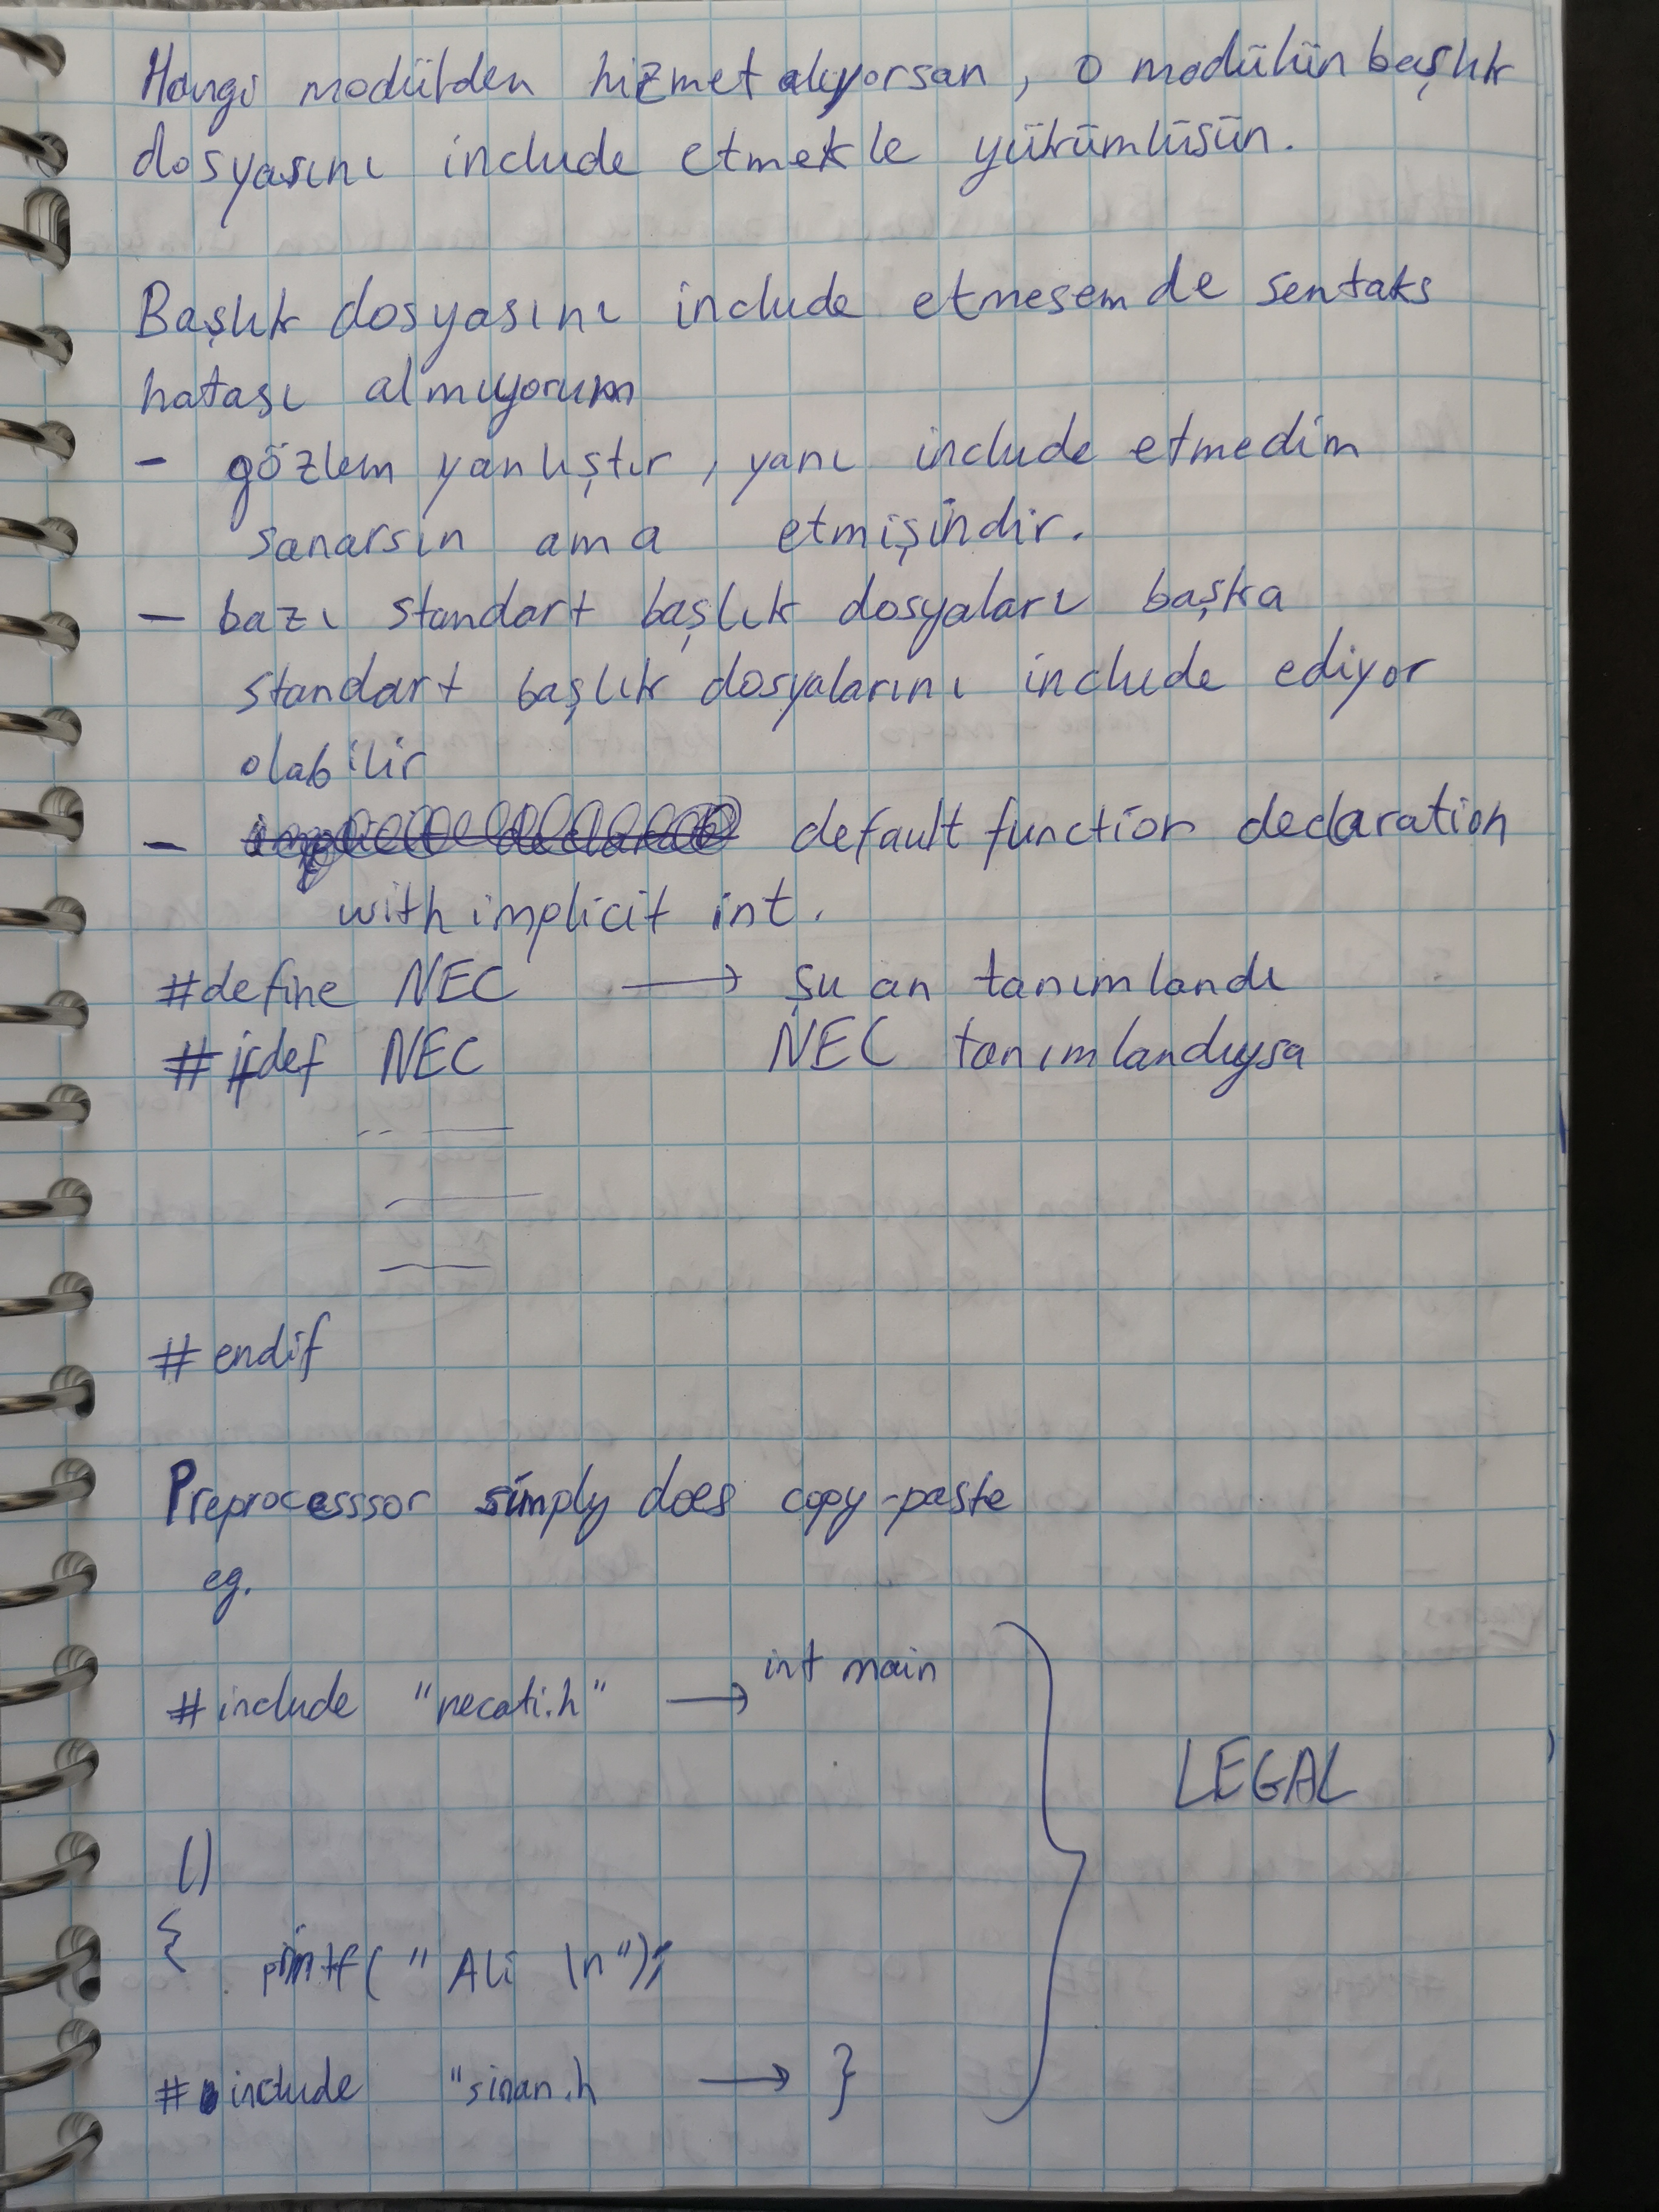 Hangi modülden hizmet alıyorsan, o modülün başlık
dosyasını include etmekle yükümlüsün.
Başlık dosyasını include etmesem de sentaks
hatası almıyorum
- gözlem yanlıştır, yanı include etmedim
sanarsın ama etmişindir.
- bazı standart başlık dosyaları başka
standart başlık dosyalarını include ediyor
olabilir
- default function declaration
with implicit int.
#define NEC → şu an tanımlandı
#ifdef NEC NEC tanımlandıysa
#endif
Preprocesssor simply does copy-paste
eg.
#include "necati.h" → int main
()
{ printf(" Ali \n");
#include "sinan.h → }
LEGAL